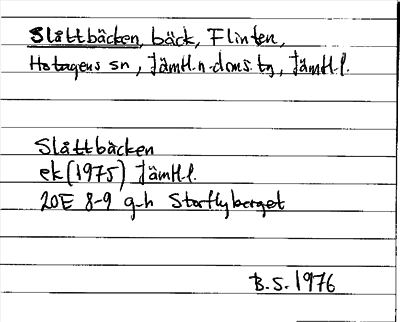 Slåttbäcken, bäck, Flinten,
Hotagens sn, Jämtl.n.doms.tg, Jämtl.l.
Slåttbäcken
ek (1975) Jämtl.l.
20E 8-9 g-h Storflyberget
B.S. 1976